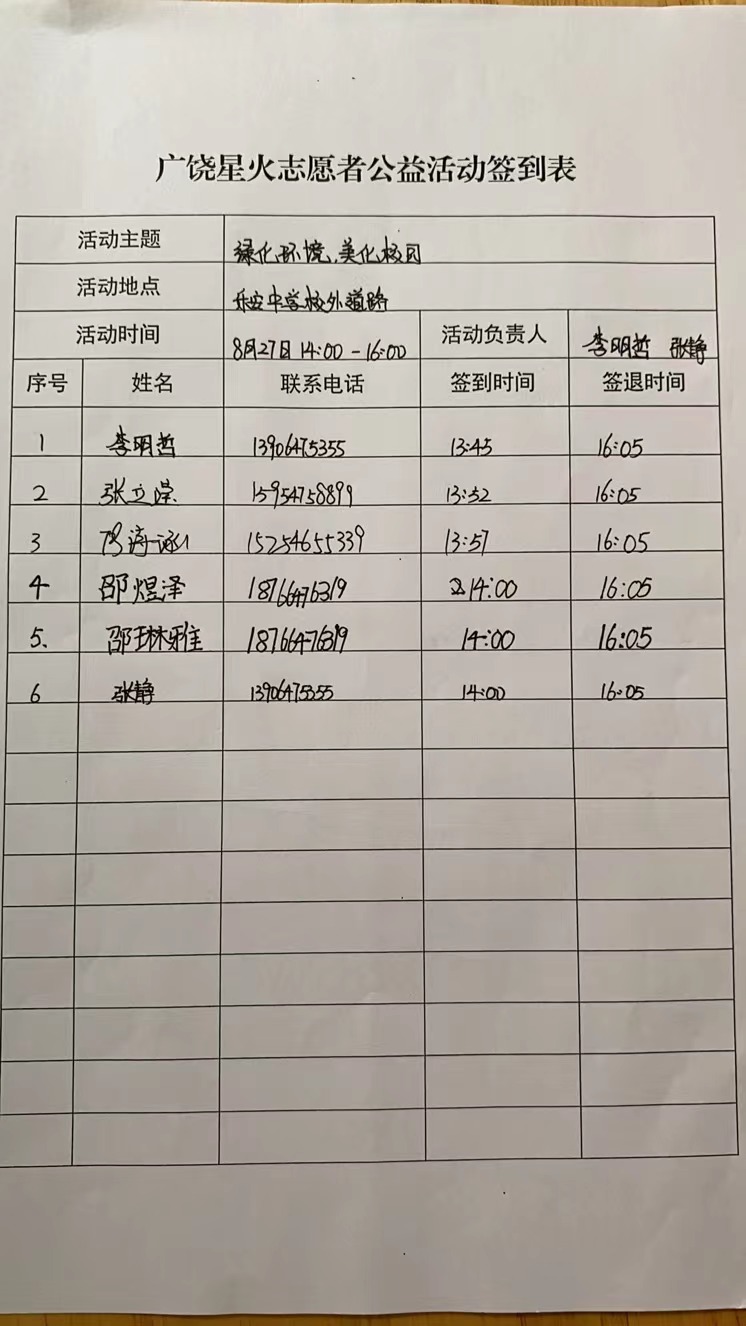 广饶星火志愿者公益活动签到表
活动主题 绿化环境,美化校园
活动地点 乐安中学校外道路
活动时间 8月27日 14:00-16:00 活动负责人 李明哲 张静
序号 姓名 联系电话 签到时间 签退时间
1 李明哲 13906475355 13:45 16:05
2 张立 15954758899 13:52 16:05
3 15254655339 13:57 16:05
4 邵煜泽 18766476319 14:00 16:05
5. 邵琳雅 18766476319 14:00 16:05
6 张静 13906475355 14:00 16:05